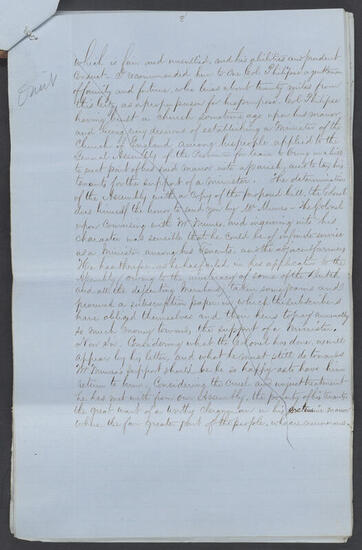 8
Omit
which is fair and unsullied, and his abilities and prudent
conduct I recommended him to one Col. Philipse a gentleman
of family and fortune, who lives about twenty miles from
this City as a proper person for his purpose. Col Philipse
having built a church sometime ago upon his manor
and being very desirous of establishing a Minister of the
Church of England among his people applied to the
General Assembly of the Province for leave to
to erect part of his said manor into a parish, and to tax his
tenants for the support of a minister. The determination
of the Assembly with a Copy of the proposed bill, the Colonel
does himself the honor to send you by Mr Munro. The Colonel
upon conversing with Mr Munro, and inquiring into his
character was sensible that he could be of infinite service
as a Minister among his tenants, and the adjacent farmers
He has therefore, as he has failed in his application to the
Assembly owing to the of some of the Dutch
and all the dissenting members, taken some pains and
procured a subscription paper in which the subscribers
have obliged themselves and their heirs to pay annually
so much money towards the support of a Minister.
Now Sir Considering what the Colonel has done, as will
appear by his letter, and what he must still do towards
Mr Munro's support should he be so happy as to have him
return to him, Considering the cruel and unjust treatment
he has met with from our Assembly, the poverty of his tenants
the great want of a worthy Clergyman in his extensive manor
where the far greater part of the people, who are numerous,